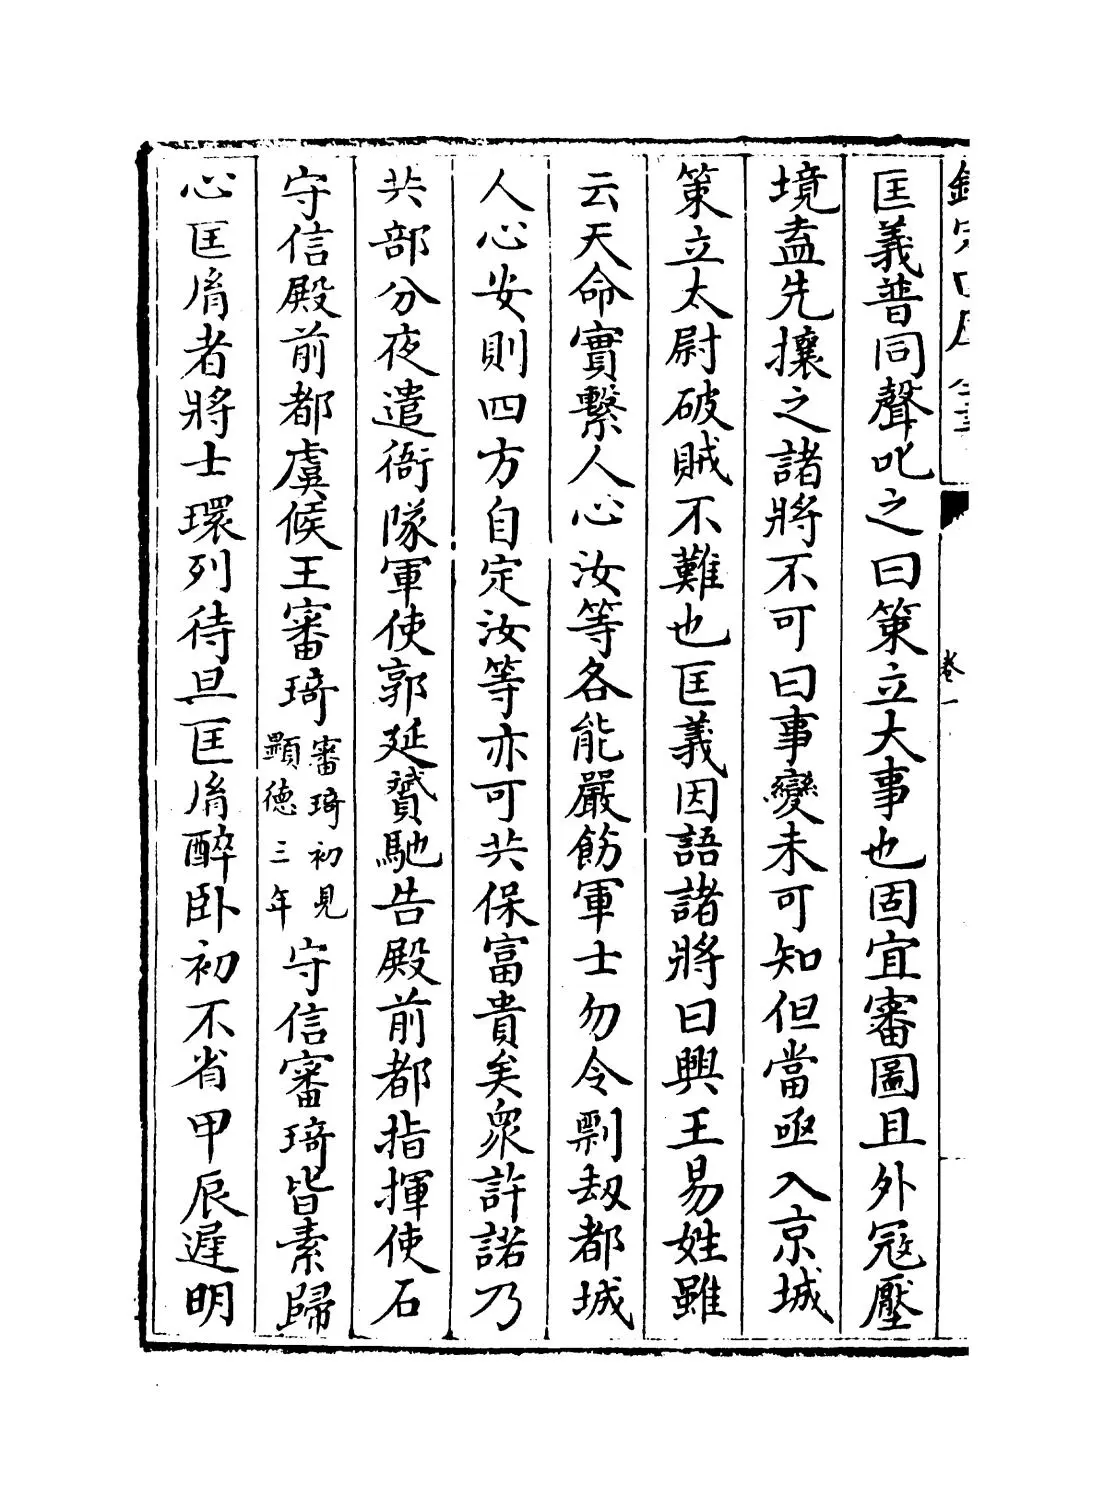 匡義普同聲叱之曰策立大事也固宜審圖且外冦壓
境盍先攘之諸將不可曰事變未可知但當亟入京城
策立太尉破賊不難也匡義因語諸將曰興王易姓雖
云天命實繫人心汝等各能嚴飭軍士勿令剽刼都城
人心安則四方自定汝等亦可共保富貴矣衆許諾乃
共部分夜遣衙隊軍使郭延贇馳告殿前都指揮使石
守信殿前都虞候王審琦
審琦初見
顯德三年
守信審琦皆素歸
心匡胤者將士環列待旦匡胤醉卧初不省甲辰遲明
卷一